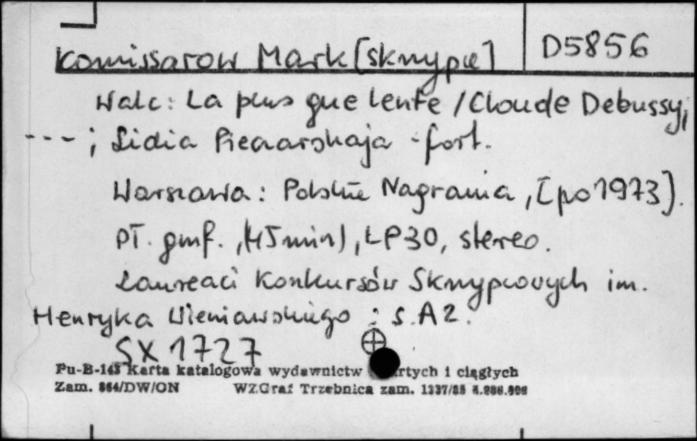 Komissarow Mark [skrzypce] D5856
Walc: La plus que lente / Claude Debussy;
---; Lidia Pieczarskaja - fort.
Warszawa: Polskie Nagrania, [po 1973].
pł. gmf., (45 min), LP30, stereo.
Laureaci Konkursów Skrzypcowych im.
Henryka Wieniawskiego: s. A2.
SX 1727
Pu-B-143 Karta katalogowa wydawnictw zwartych i ciągłych
Zam. 864/DW/ON WZGraf Trzebnica zam.